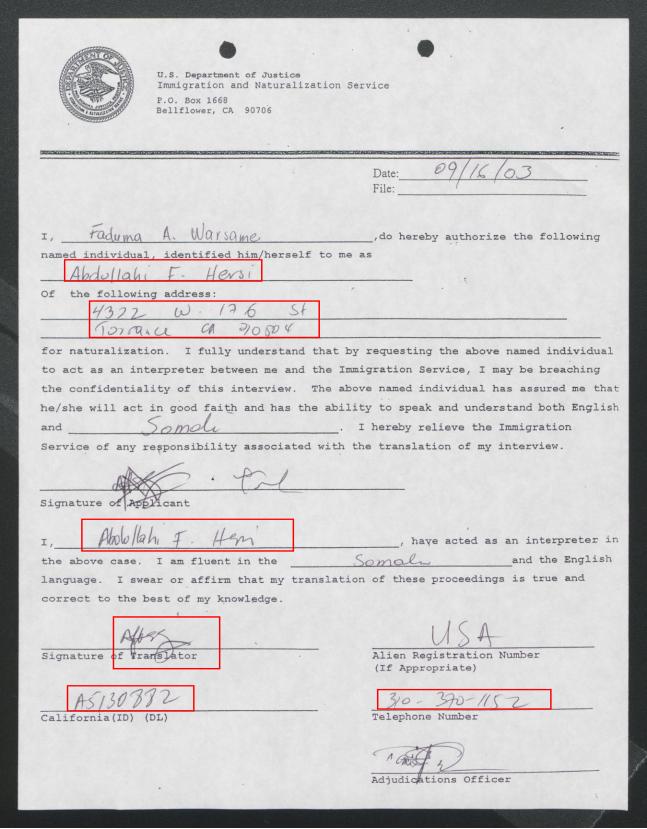 U.S. Department of Justice
Immigration and Naturalization Service
P.O. Box 1668
Bellflower, CA 90706
Date: 09/16/03
File:
I, Faduma A. Warsame, do hereby authorize the following
named individual, identified him/herself to me as
Abdullahi F. Hersi
Of the following address:
4322 W. 176 St
Torrance CA
for naturalization. I fully understand that by requesting the above named individual
to act as an interpreter between me and the Immigration Service, I may be breaching
the confidentiality of this interview. The above named individual has assured me that
he/she will act in good faith and has the ability to speak and understand both English
and Somali. I hereby relieve the Immigration
Service of any responsibility associated with the translation of my interview.
Signature of Applicant
I, Abdullahi F. Hersi, have acted as an interpreter in
the above case. I am fluent in the Somali and the English
language. I swear or affirm that my translation of these proceedings is true and
correct to the best of my knowledge.
USA
Signature of Translator Alien Registration Number
(If Appropriate)
A5130882 310-370-1152
California(ID) (DL) Telephone Number
Adjudications Officer